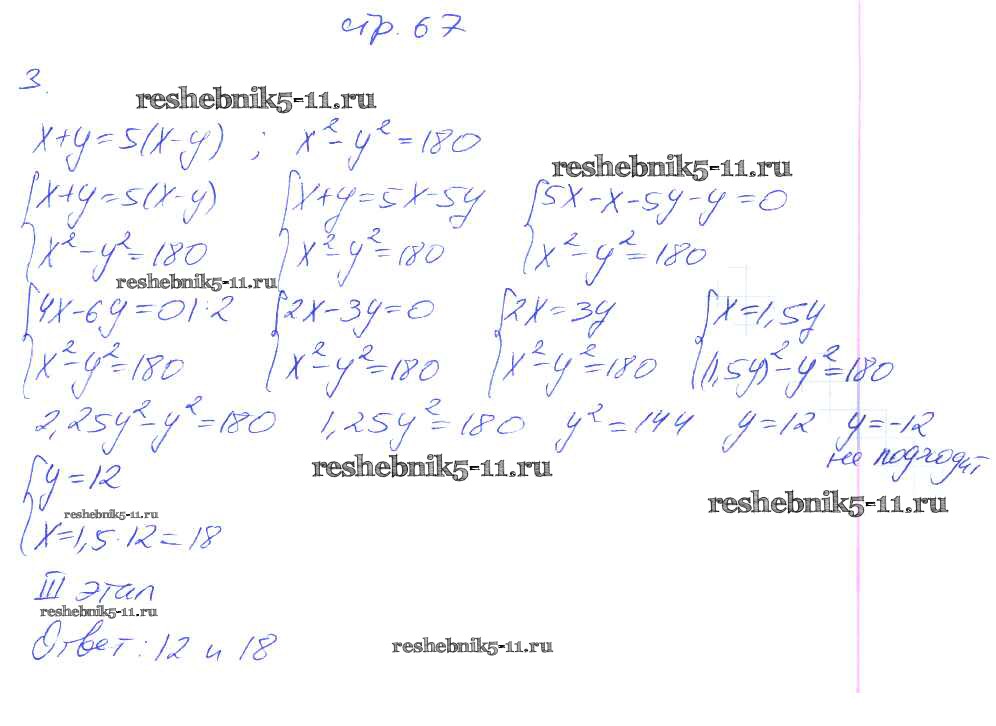 стр. 67
3.
reshebnik5-11.ru
x+y=5(x-y) ; x²-y²=180
reshebnik5-11.ru
{x+y=5(x-y) {x+y=5x-5y {5x-x-5y-y=0
{x²-y²=180 {x²-y²=180 {x²-y²=180
reshebnik5-11.ru
{4x-6y=0|:2 {2x-3y=0 {2x=3y {x=1,5y
{x²-y²=180 {x²-y²=180 {x²-y²=180 {(1,5y)²-y²=180
2,25y²-y²=180 1,25y²=180 y²=144 y=12 y=-12
не подходит
reshebnik5-11.ru
{y=12
reshebnik5-11.ru
reshebnik5-11.ru
{x=1,5·12=18
III этап
reshebnik5-11.ru
Ответ: 12 и 18
reshebnik5-11.ru